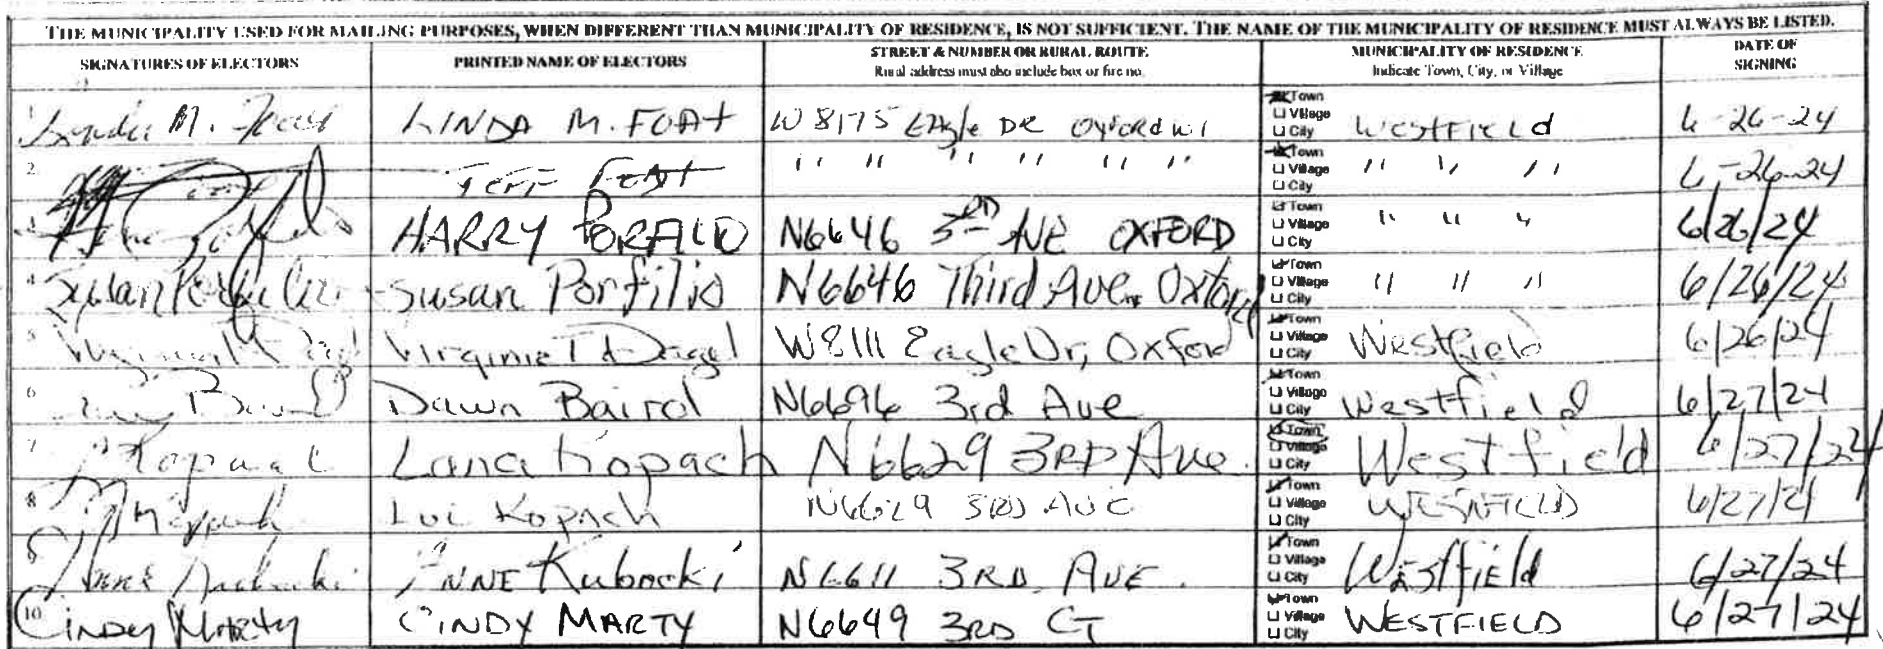 THE MUNICIPALITY USED FOR MAILING PURPOSES, WHEN DIFFERENT THAN MUNICIPALITY OF RESIDENCE, IS NOT SUFFICIENT. THE NAME OF THE MUNICIPALITY OF RESIDENCE MUST ALWAYS BE LISTED.
SIGNATURES OF ELECTORS PRINTED NAME OF ELECTORS STREET & NUMBER OR RURAL ROUTE Rural address must also include box or fire no. MUNICIPALITY OF RESIDENCE Indicate Town, City, or Village DATE OF SIGNING
1 Linda M. Foat LINDA M. FOAT W8175 EAgle DR OxfoRd WI Town Village City WESTFIELd 6-26-24
2. JEFF FOAT " " " " " " Town Village City " " " 6-26-24
3 HARRY PORFILIO N6646 3RD AVE OXFORD Town Village City " " " 6/26/24
4 Susan Porfilio Susan Porfilio N6646 Third Ave. Oxford Town Village City " " " 6/26/24
5 W8111 Eagle Dr, Oxford Town Village City Westfield 6/26/24
6 Dawn Baird N6696 3rd Ave Town Village City Westfield 6/27/24
7 Kopach Lana Kopach N6629 3RD Ave. Town Village City Westfield 6/27/24
8 Kopach Lui Kopach N6629 3RD AVE Town Village City WESTFIELD 6/27/24
9 Anne Kubacki ANNE Kubacki N6611 3RD. AVE. Town Village City WEstfiEld 6/27/24
10 CINDY MARTY CINDY MARTY N6649 3RD CT Town Village City WESTFIELD 6/27/24